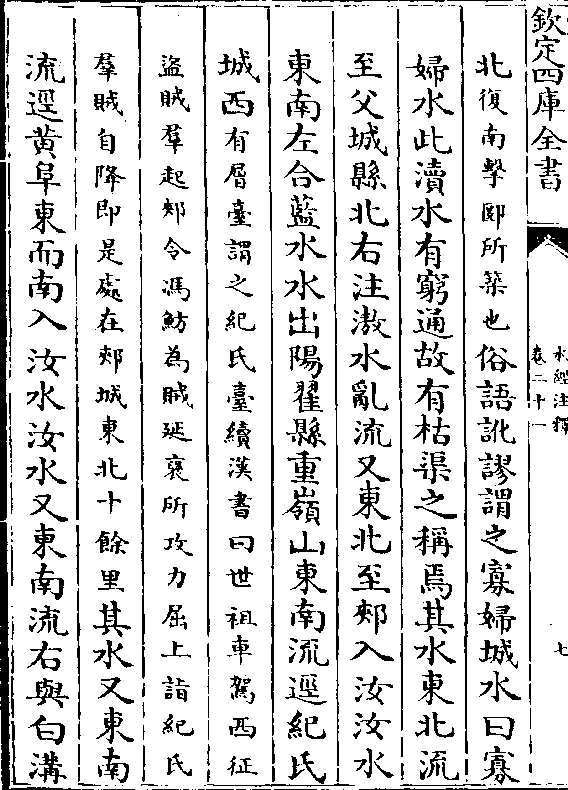 欽定四庫全書
水經注釋
卷二十一
七
北復南擊郾所築也俗語訛謬謂之寡婦城水曰寡
婦水此瀆水有窮通故有枯渠之稱焉其水東北流
至父城縣北右注滶水亂流又東北至郟入汝汝水
東南左合藍水水出陽翟縣重嶺山東南流逕紀氏
城西有層臺謂之紀氏臺續漢書曰世祖車駕西征
盜賊羣起郟令馮魴為賊延裒所攻力屈上詣紀氏
羣賊自降即是處在郟城東北十餘里其水又東南
流逕黃阜東而南入汝水汝水又東南流右與白溝